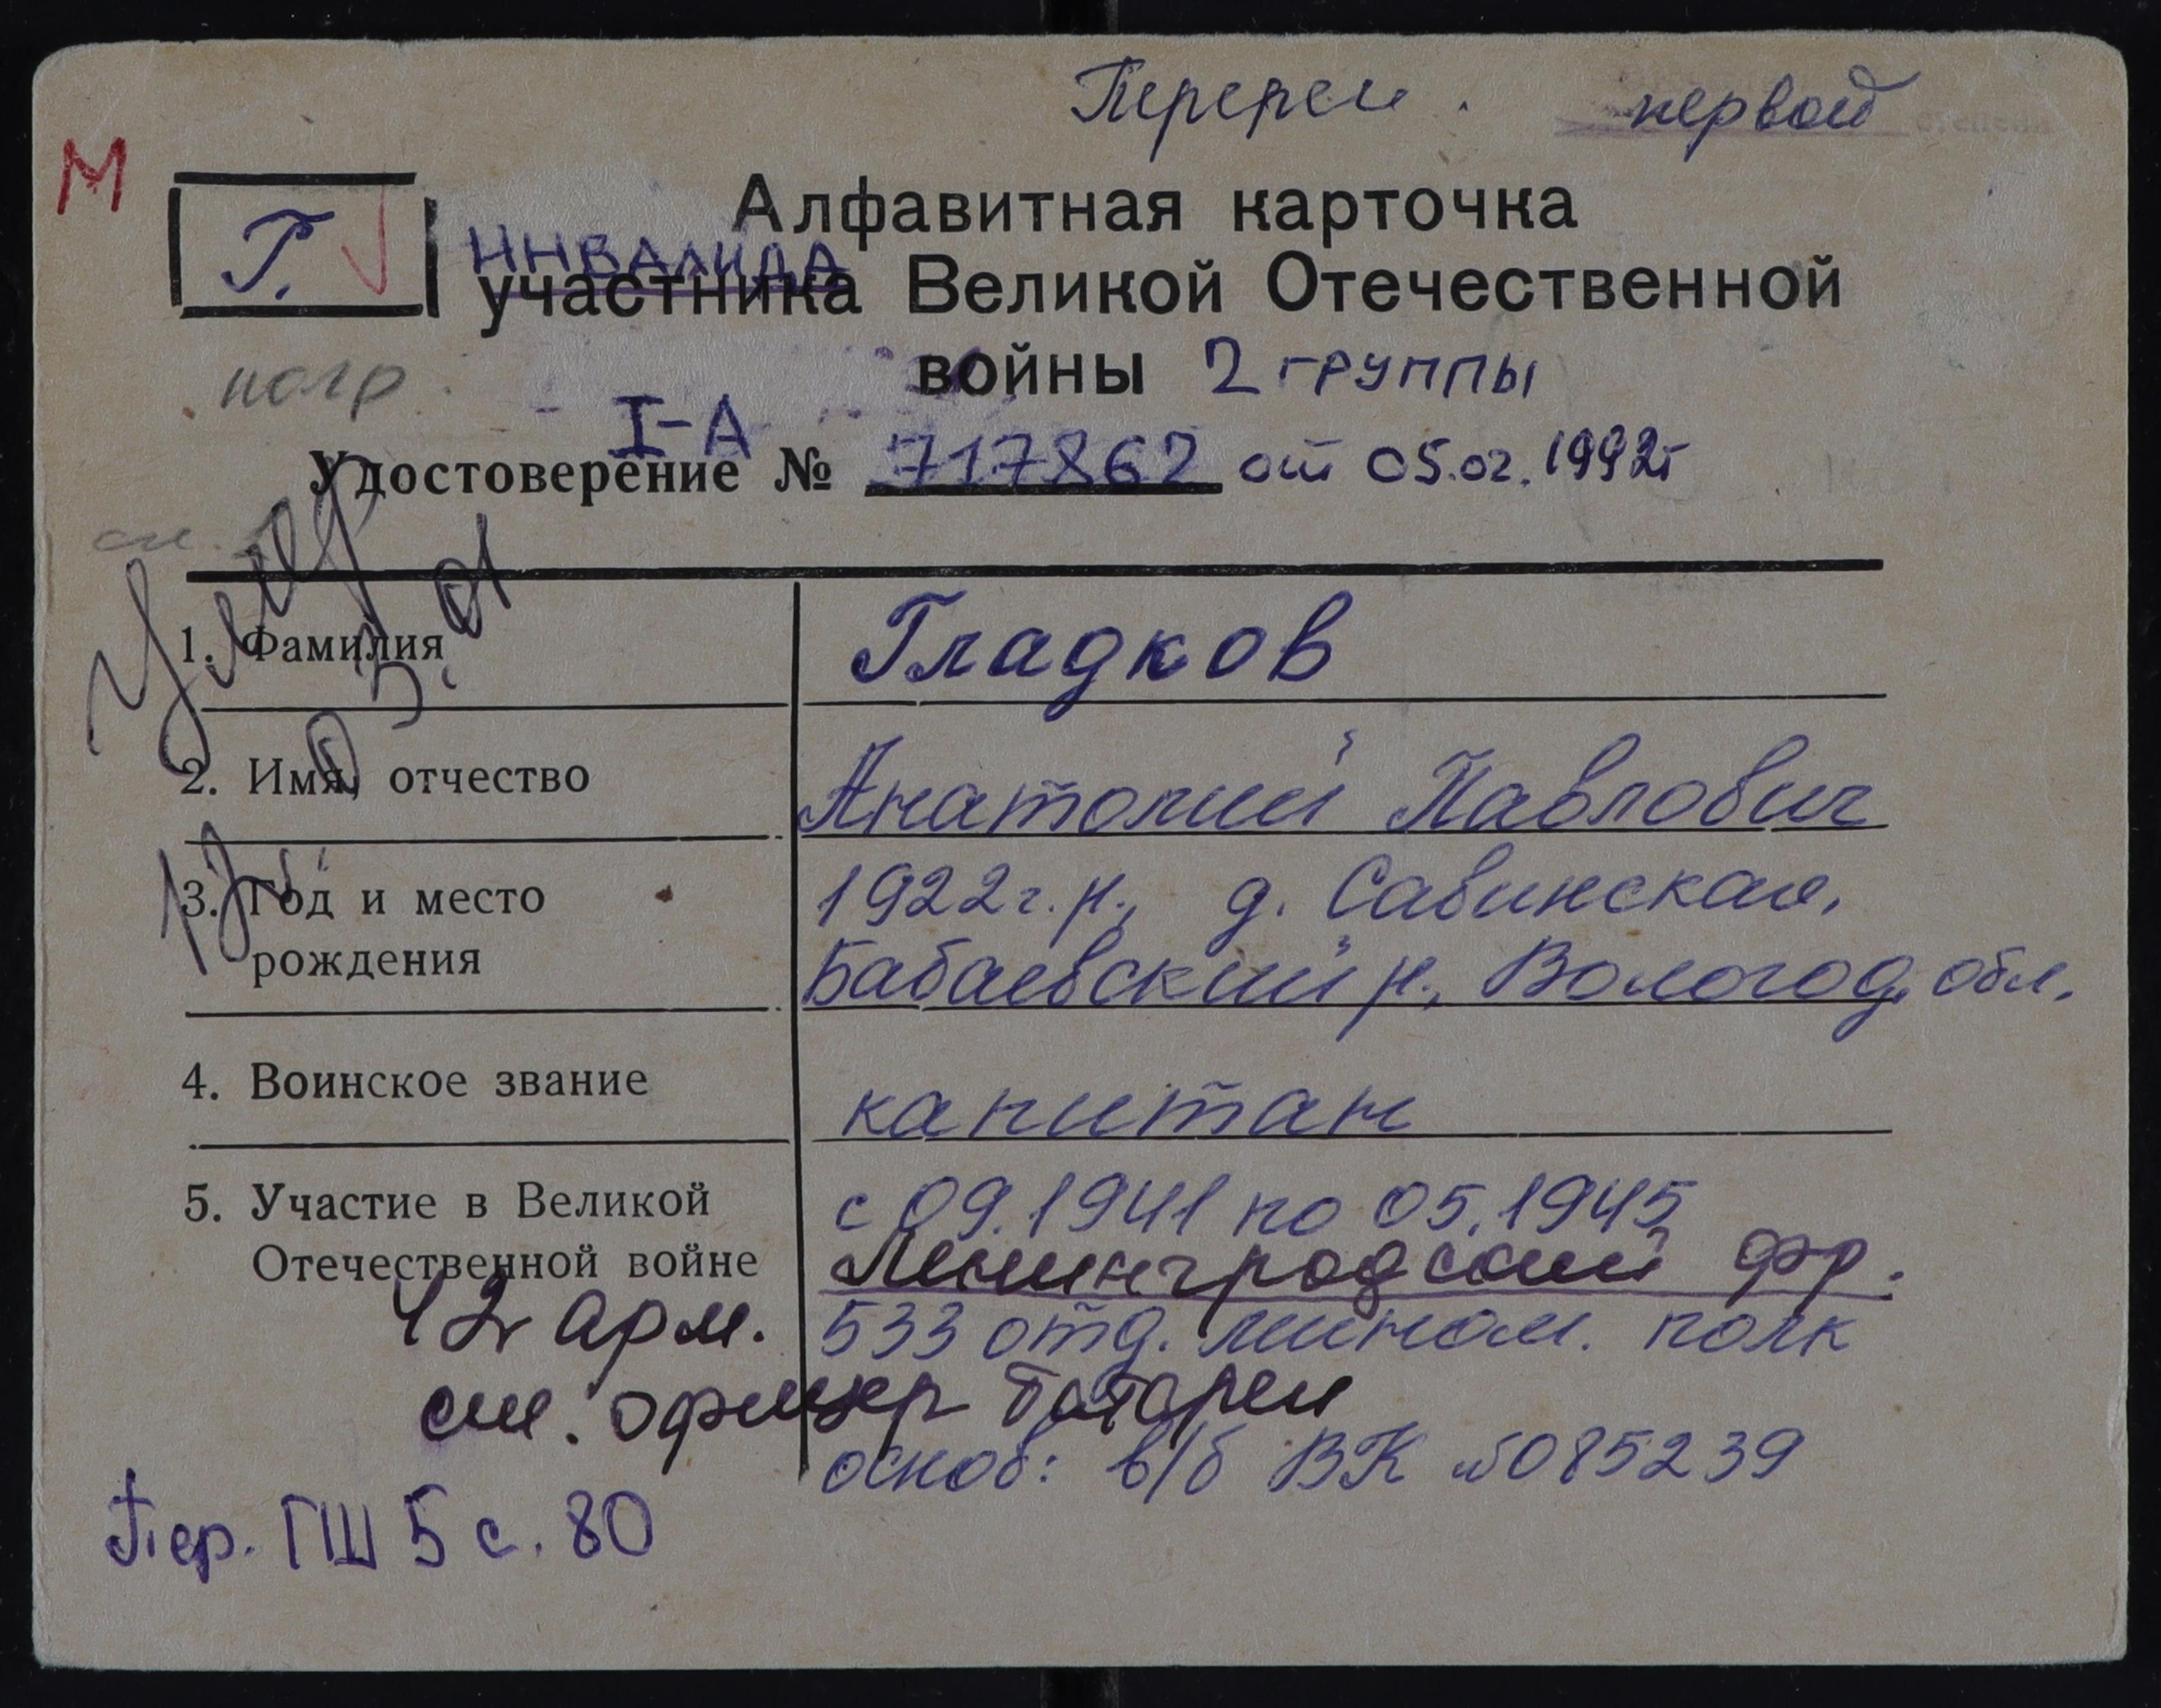 Перерег. первой степени
М
Г.
Алфавитная карточка
ИНВАЛИДА
участника Великой Отечественной
войны 2 группы
погр.
I-А
Удостоверение № 717862 от 05.02.1992г
Умер
13.03.01
1. Фамилия Гладков
2. Имя, отчество Анатолий Павлович
3. Год и место 1922г.р., д. Савинская,
рождения Бабаевский р., Вологод. обл.
4. Воинское звание капитан
5. Участие в Великой с 09.1941 по 05.1945
Отечественной войне Ленинградский фр.
42 арм. 533 отд. мином. полк
ст. офицер батареи
основ: в/б ВК №085239
Пер. ГШ 5 с. 80